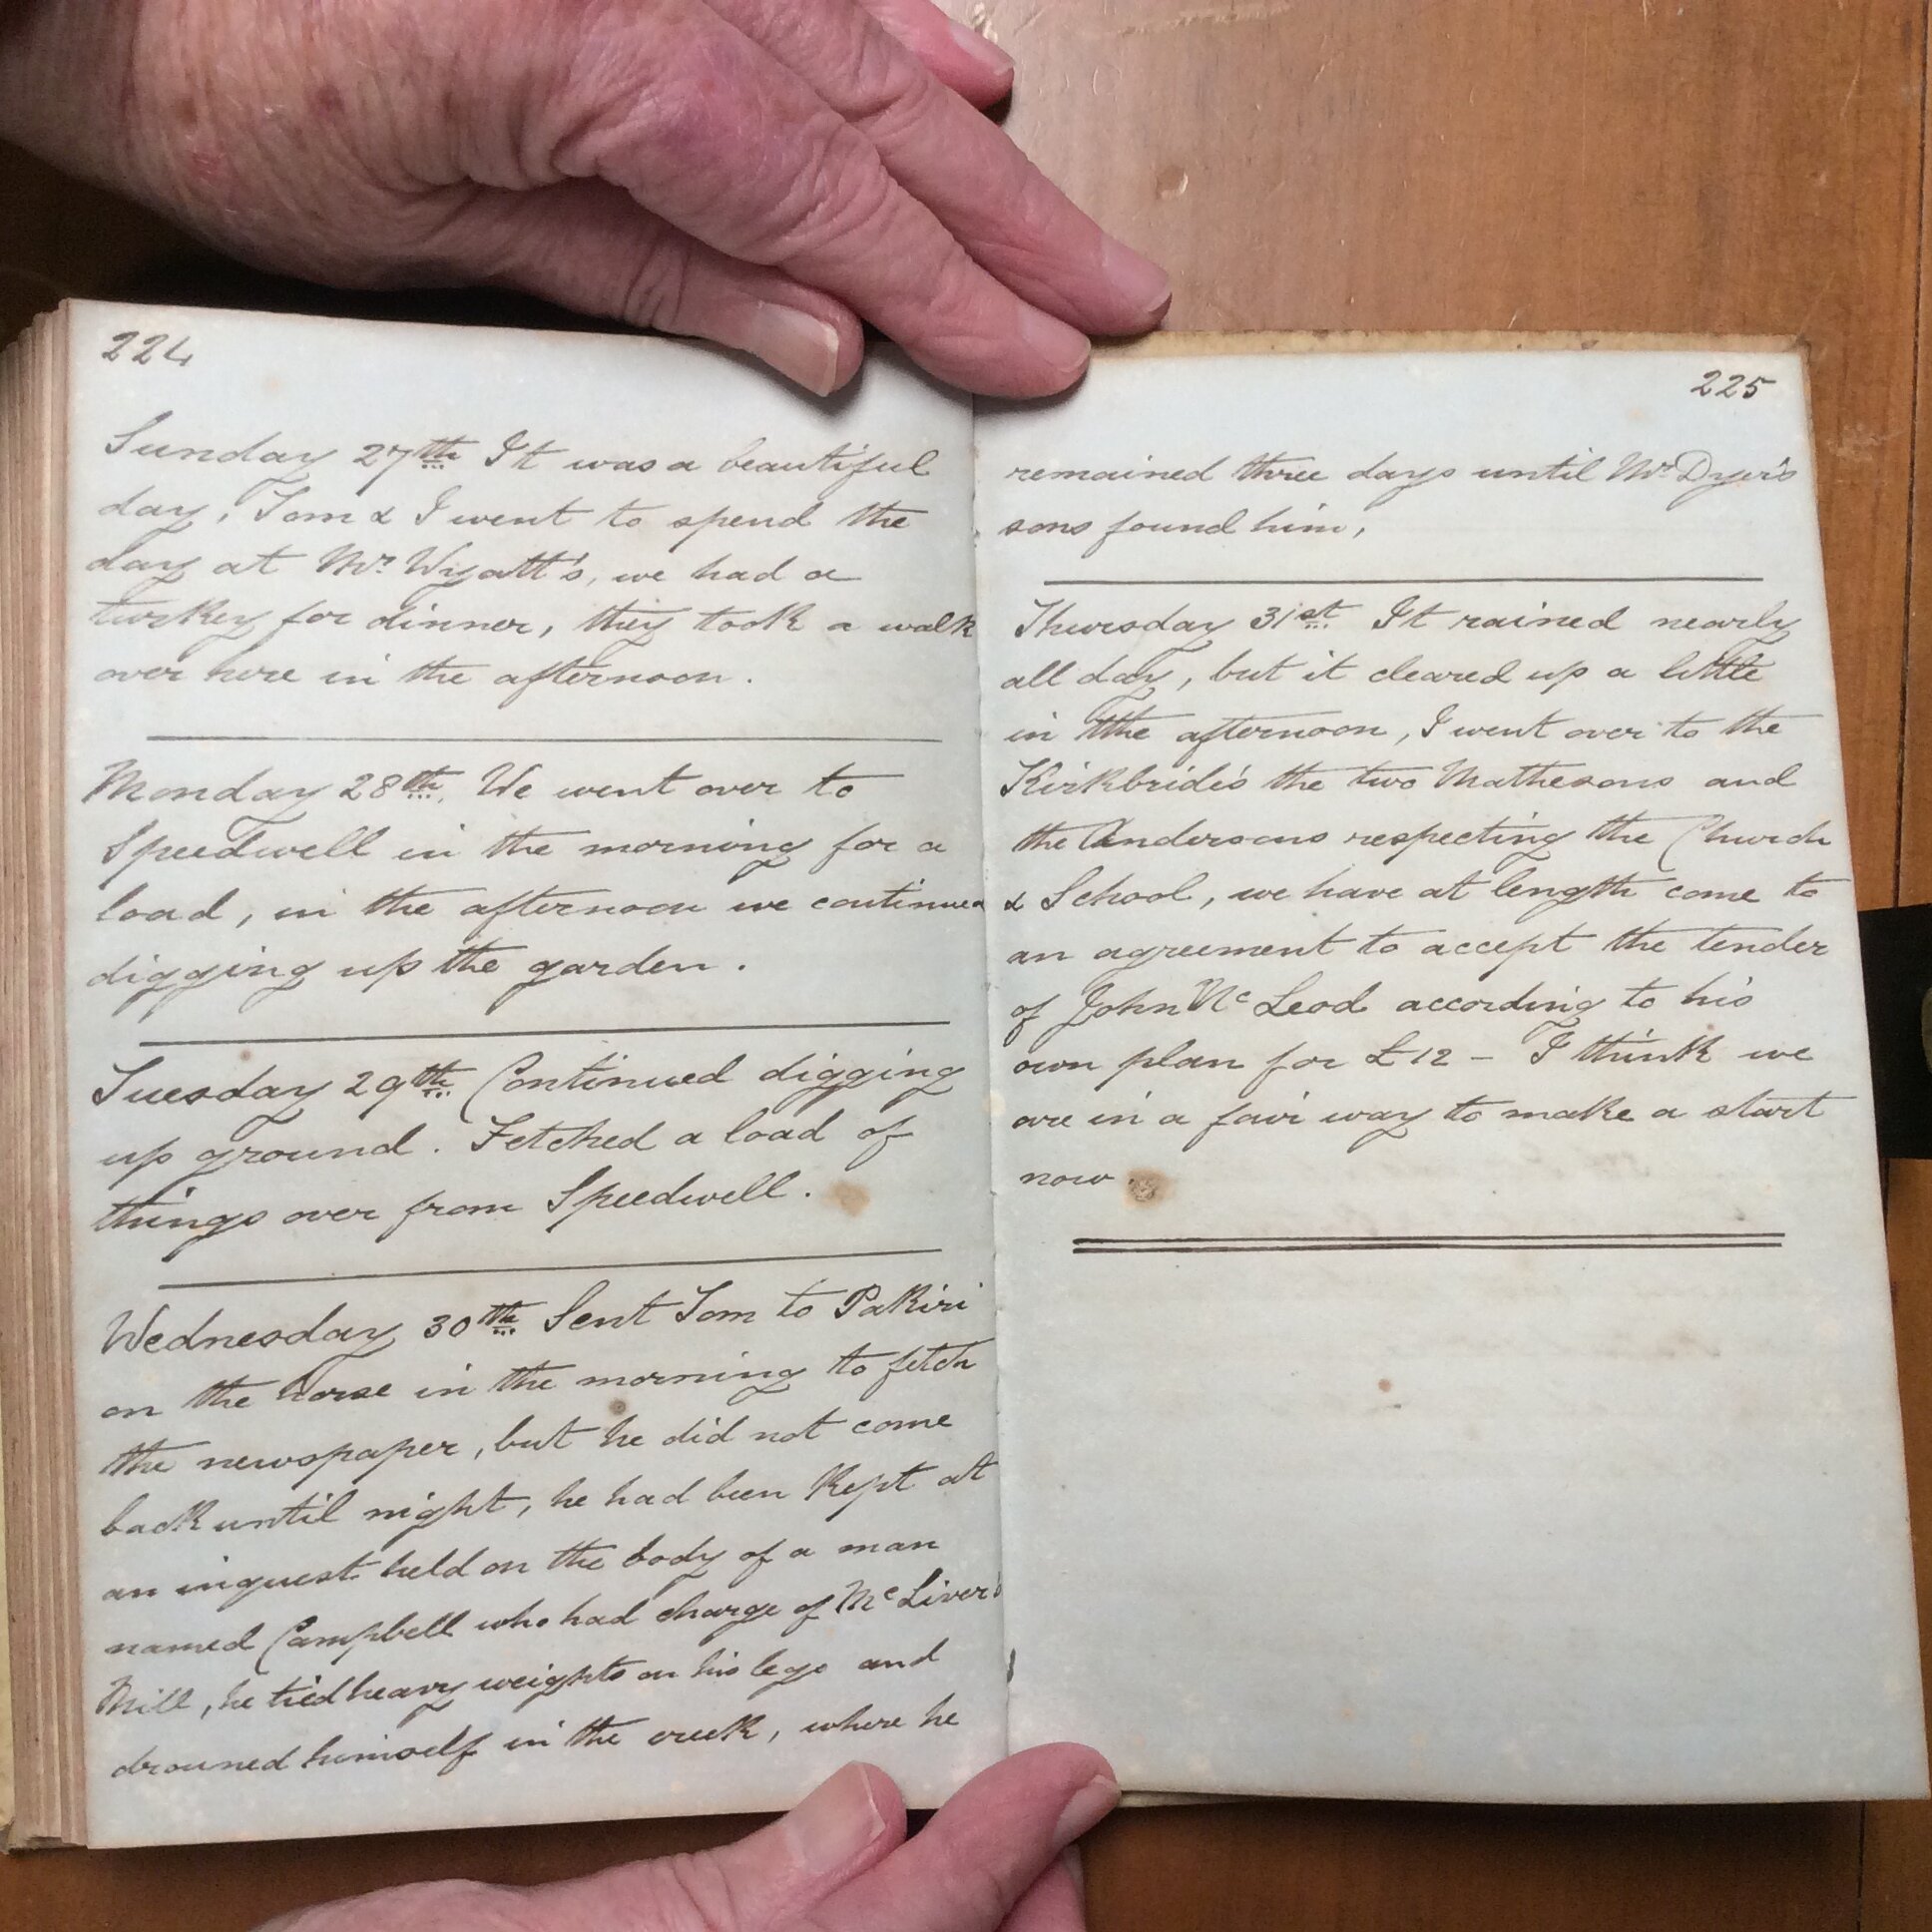 224
Sunday 27th It was a beautiful
day, Tom & I went to spend the
day at Mr Wyatt's, we had a
turkey for dinner, they took a walk
over here in the afternoon.
Monday 28th. We went over to
Speedwell in the morning for a
load, in the afternoon we continued
digging up the garden.
Tuesday 29th Continued digging
up ground. Fetched a load of
things over from Speedwell.
Wednesday 30th Sent Tom to Pakiri
on the horse in the morning to fetch
the newspaper, but he did not come
back until night, he had been kept at
an inquest held on the body of a man
named Campbell who had charge of McLiver's
Mill, he tied heavy weights on his legs and
drowned himself in the creek, where he
225
remained three days until Mr Dyer's
sons found him,
Thursday 31st It rained nearly
all day, but it cleared up a little
in the afternoon, I went over to the
Kirkbride's the two Mathesons and
the Andersons respecting the Church
& School, we have at length come to
an agreement to accept the tender
of John McLeod according to his
own plan for £12 - I think we
are in a fair way to make a start
now.